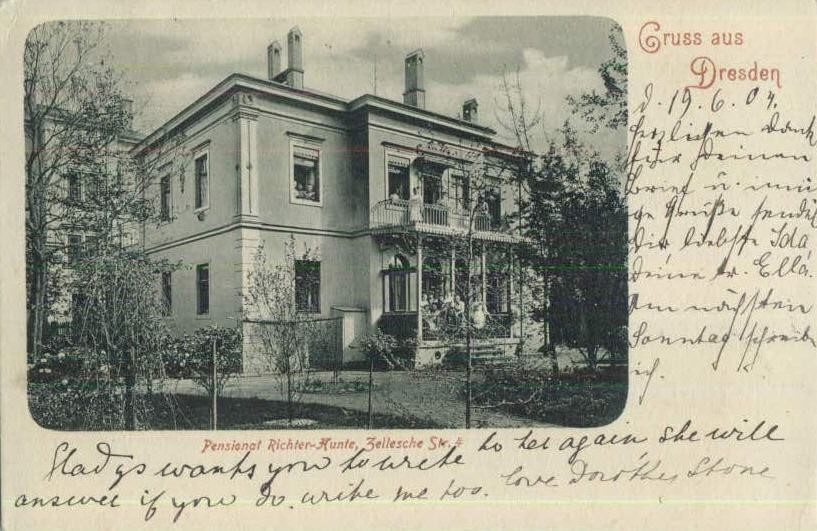 Gruss aus
Dresden
d. 19.6.04.
Herzlichen Dank
für Deinen
Brief u. innige
Grüße sendet
Dir liebste Ida
Deine tr. Ella.
Am nächsten
Sonntag schreibe
ich.
Pensionat Richter-Hunte, Zellesche Str. 4
Gladys wants you to write to her again she will
answer if you do. write me too. love Dorothy Stone